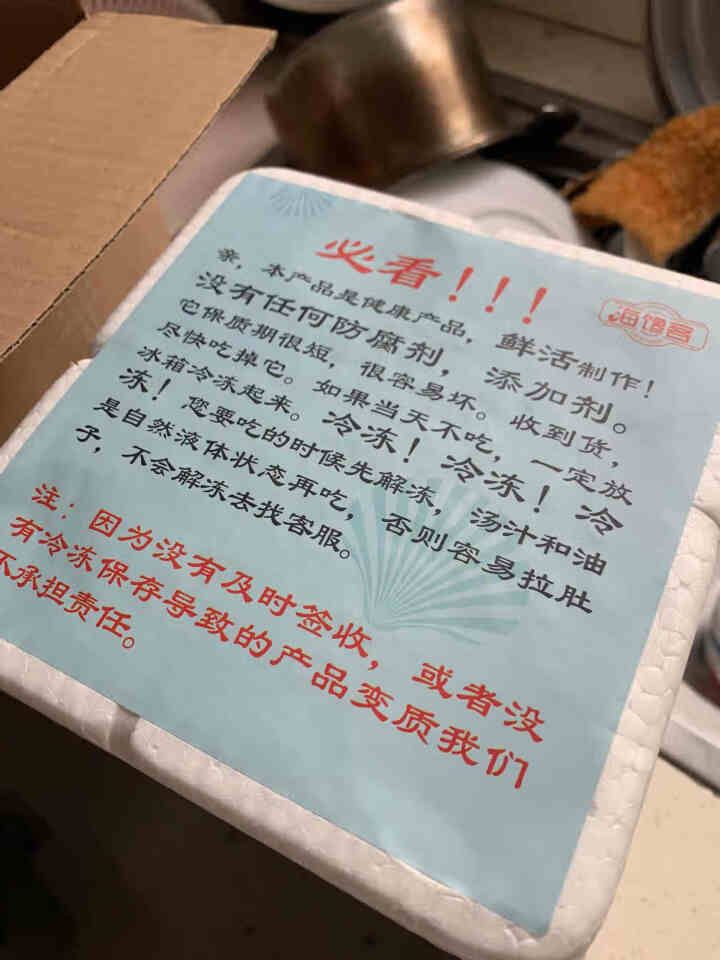 必看!!!
海馋客
亲，本产品是健康产品，鲜活制作!
没有任何防腐剂，添加剂。
它保质期很短，很容易坏。收到货，
尽快吃掉它。如果当天不吃，一定放
冰箱冷冻起来。冷冻!冷冻!冷
冻!您要吃的时候先解冻，汤汁和油
是自然液体状态再吃，否则容易拉肚
子，不会解冻去找客服。
注:因为没有及时签收，或者没
有冷冻保存导致的产品变质我们
不承担责任。